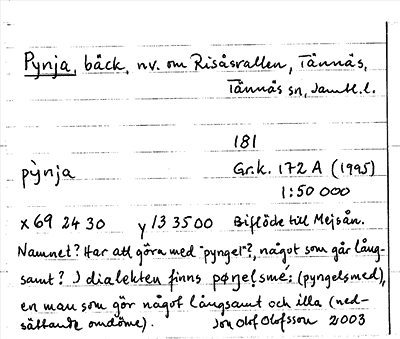 Pynja, bäck, nv. om Risåsvallen, Tännäs,
Tännäs sn, Jämtl.l.
181
pỳnja Gr.k. 172 A (1995)
1:50 000
x 69 24 30 y 13 35 00 Biflöde till Mejsån.
Namnet? Har att göra med "pyngel"?, något som går lång-
samt? I dialekten finns pøŋelsmé: (pyngelsmed),
en man som gör något långsamt och illa (ned-
sättande omdöme). Jon Olof Olofsson 2003